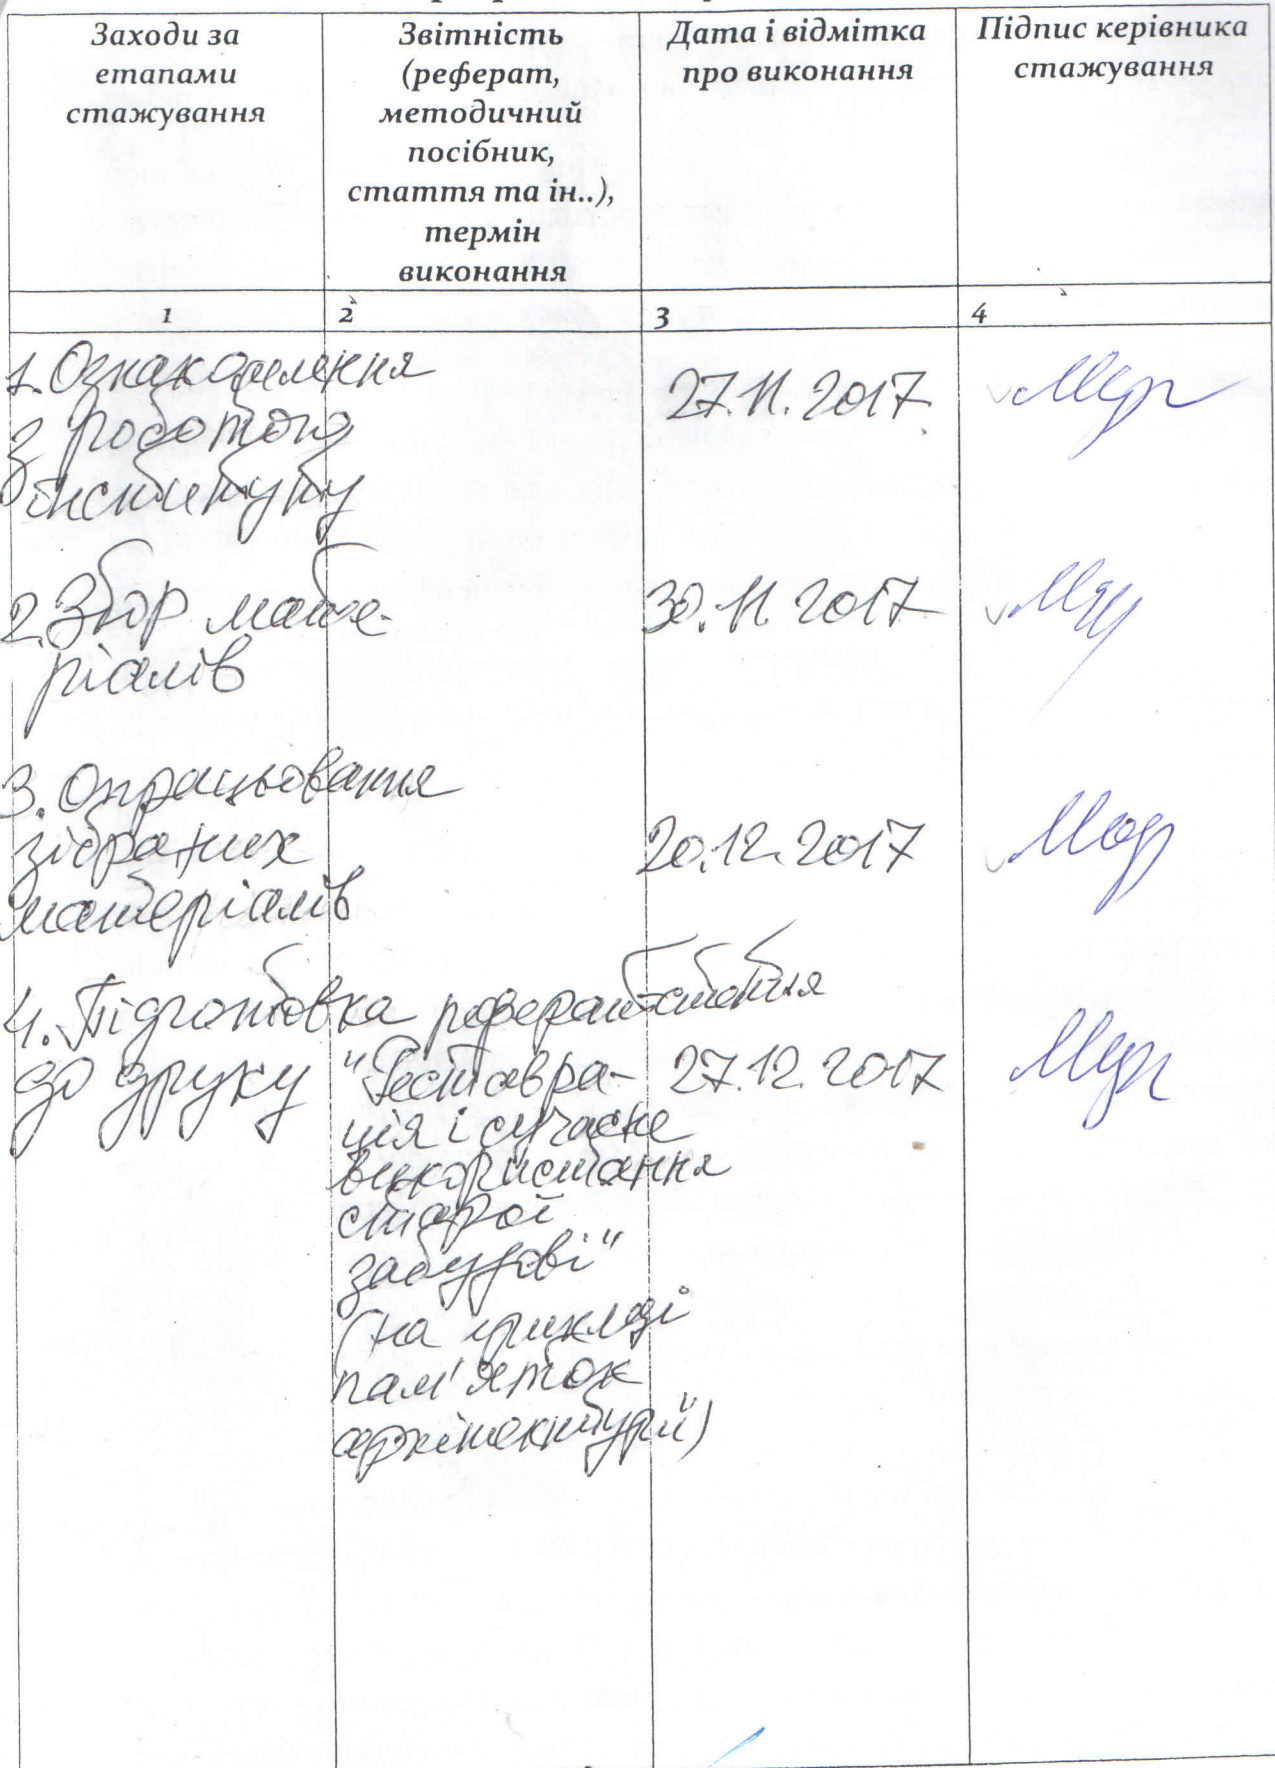 Заходи за
етапами
стажування
Звітність
(реферат,
методичний
посібник,
стаття та ін..),
термін
виконання
Дата і відмітка
про виконання
Підпис керівника
стажування
1
2
3
4
1. Ознакомлення
з роботою
інституту
27.11.2017
2. Збор мате-
ріалів
30.11.2017
3. Опрацьовання
зібраних
матеріалів
20.12.2017
4. Підготовка
до друку
реферат-стаття
"Реставра-
ція і сучасне
використання
старої
забудові"
(на прикладі
пам'яток
архітектури)
27.12.2017